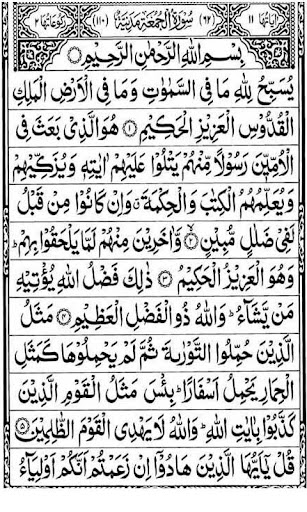 اٰيَاتُهَا ١١ (٦٢) سُوْرَةُ الْجُمُعَةِ مَدَنِيَّةٌ (١١٠) رُكُوْعَاتُهَا ٢
بِسْمِ اللهِ الرَّحْمٰنِ الرَّحِيْمِ
يُسَبِّحُ لِلّٰهِ مَا فِى السَّمٰوٰتِ وَمَا فِى الْاَرْضِ الْمَلِكِ
الْقُدُّوْسِ الْعَزِيْزِ الْحَكِيْمِ ۝١ هُوَ الَّذِىْ بَعَثَ فِى
الْاُمِّيّٖنَ رَسُوْلًا مِّنْهُمْ يَتْلُوْا عَلَيْهِمْ اٰيٰتِهٖ وَيُزَكِّيْهِمْ
وَيُعَلِّمُهُمُ الْكِتٰبَ وَالْحِكْمَةَ ۗ وَاِنْ كَانُوْا مِنْ قَبْلُ
لَفِىْ ضَلٰلٍ مُّبِيْنٍ ۝٢ وَّاٰخَرِيْنَ مِنْهُمْ لَمَّا يَلْحَقُوْا بِهِمْ ؕ
وَهُوَ الْعَزِيْزُ الْحَكِيْمُ ۝٣ ذٰلِكَ فَضْلُ اللهِ يُؤْتِيْهِ
مَنْ يَّشَآءُ ؕ وَاللهُ ذُو الْفَضْلِ الْعَظِيْمِ ۝٤ مَثَلُ
الَّذِيْنَ حُمِّلُوا التَّوْرٰىةَ ثُمَّ لَمْ يَحْمِلُوْهَا كَمَثَلِ
الْحِمَارِ يَحْمِلُ اَسْفَارًا ؕ بِئْسَ مَثَلُ الْقَوْمِ الَّذِيْنَ
كَذَّبُوْا بِاٰيٰتِ اللهِ ؕ وَاللهُ لَا يَهْدِى الْقَوْمَ الظّٰلِمِيْنَ ۝٥
قُلْ يٰۤاَيُّهَا الَّذِيْنَ هَادُوْۤا اِنْ زَعَمْتُمْ اَنَّكُمْ اَوْلِيَآءُ